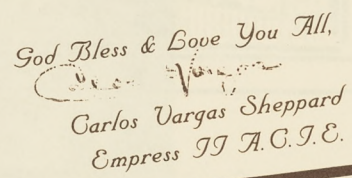 God Bless & Love You All,
Carlos Vargas Sheppard
Empress II A.C.I.E.